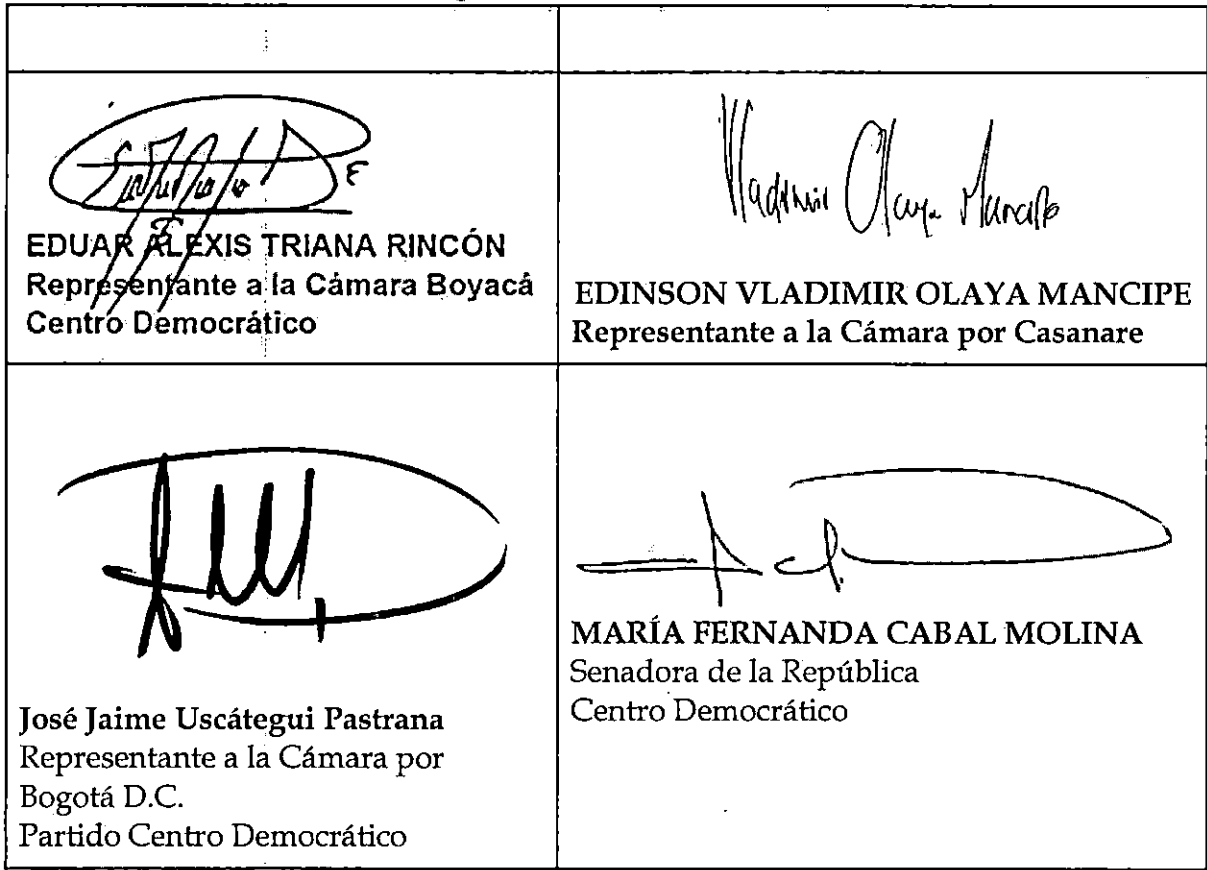 EDUAR ALEXIS TRIANA RINCÓN
Representante a la Cámara Boyacá
Centro Democrático
Vladimir Olaya Mancipe
EDINSON VLADIMIR OLAYA MANCIPE
Representante a la Cámara por Casanare
José Jaime Uscátegui Pastrana
Representante a la Cámara por
Bogotá D.C.
Partido Centro Democrático
MARÍA FERNANDA CABAL MOLINA
Senadora de la República
Centro Democrático